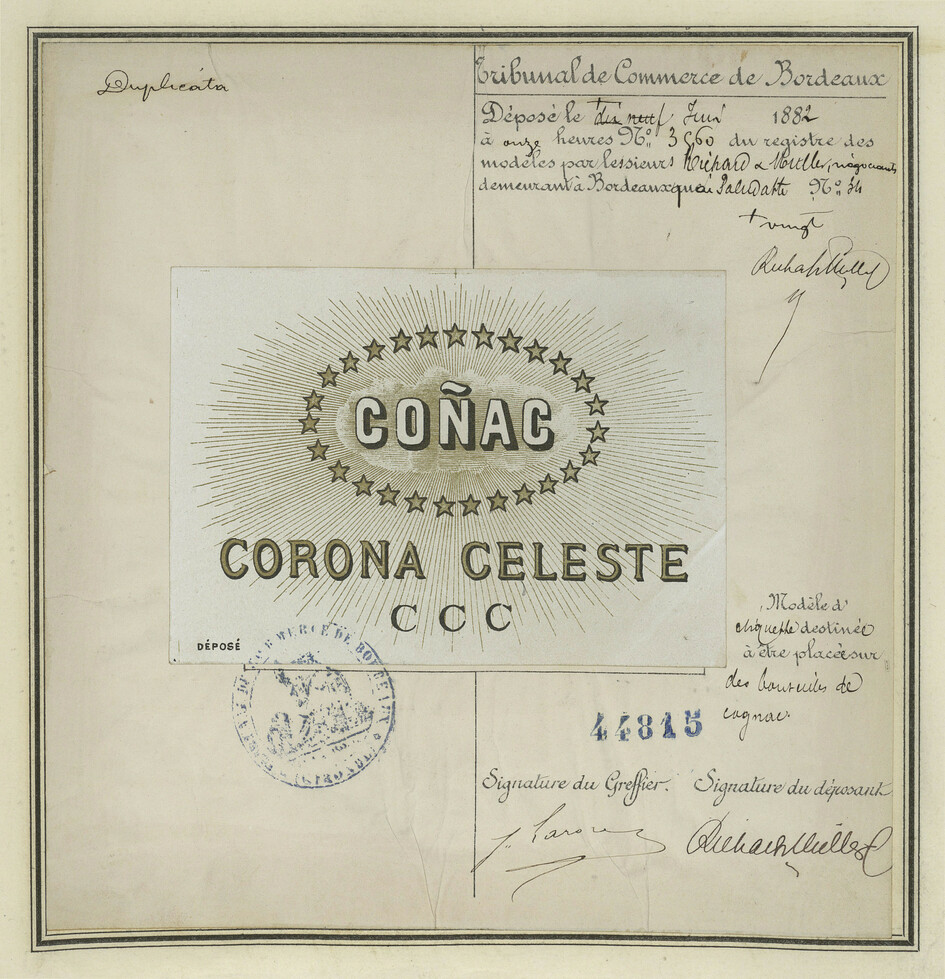 Duplicata
Tribunal de Commerce de Bordeaux
Déposé le dix neuf Juin 1882
à onze heures Nº 3560 du registre des
modèles par les sieurs Richard & Muller, négociants
demeurant à Bordeaux quai Paludatte Nº 34
+ vingt
Richard & Muller
COÑAC
CORONA CELESTE
CCC
DÉPOSÉ
Modèle d'
étiquette destinée
à être placée sur
des bouteilles de
cognac.
44815
Signature du Greffier. Signature du déposant
Richard & Muller